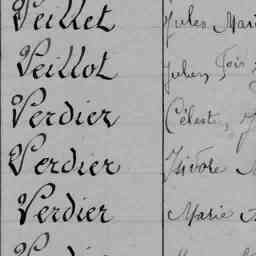 Veillet Jules Mari
Veillot Julien Fois
Verdier Céleste, J
Verdier Isidore M
Verdier Marie A